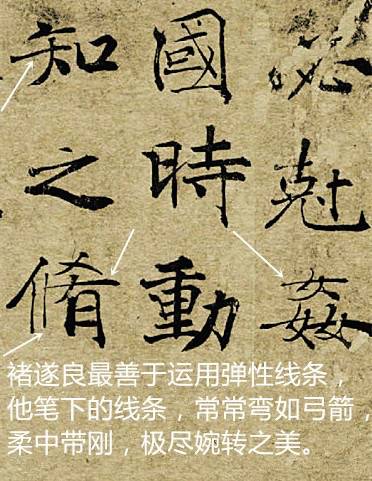 必尅姦
國時動
知之脩
褚遂良最善于运用弹性线条，
他笔下的线条，常常弯如弓箭，
柔中带刚，极尽婉转之美。